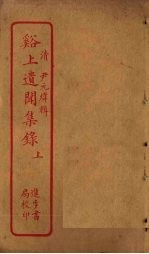 清 尹元煒輯
谿上遺聞集錄 上
進步書
局校印